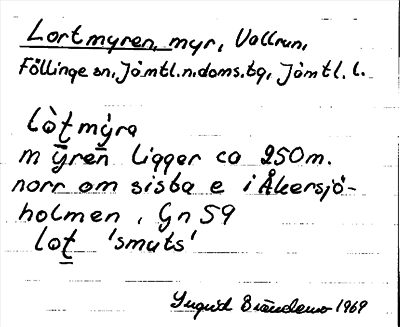 Lortmyren, myr, Vallrun,
Föllinge sn, Jämtl.n.doms.bg, Jämtl. l.
lo̊̀t̠mýra
myren ligger ca 250m.
norr om sista e i Åkersjö-
holmen, Gn 59
lot̠ 'smuts'
Ingrid Brändemo 1969